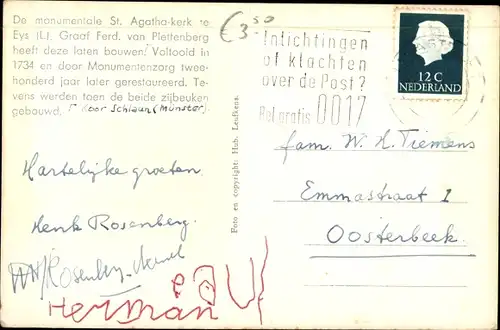 De monumentale St. Agatha-kerk te
Eys (L). Graaf Ferd. van Plettenberg
heeft deze laten bouwen. Voltooid in
1734 en door Monumentenzorg twee-
honderd jaar later gerestaureerd. Te-
vens werden toen de beide zijbeuken
gebouwd. door Schlaun (Münster).
€3 50
Inlichtingen
of klachten
over de Post?
Bel gratis 0017
12 C
NEDERLAND
Foto en copyright: Hub. Leufkens.
Hartelijke groeten
Henk Rosenberg.
Rosenberg
Herman
Fam. W. H. Tiemens
Emmastraat 1
Oosterbeek.